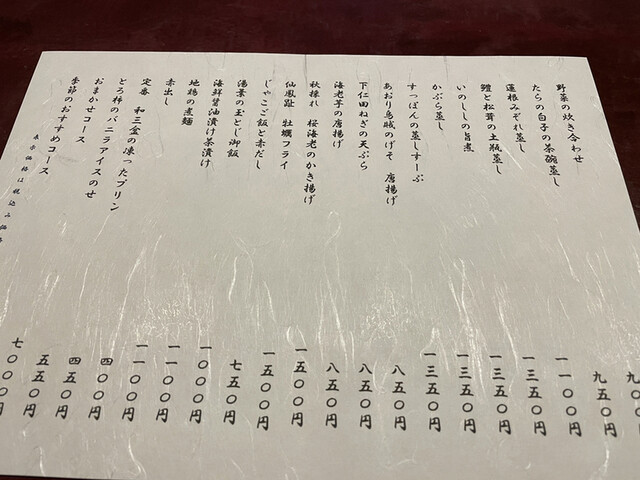 野菜の炊き合わせ
たらの白子の茶碗蒸し 九五〇円
蓮根みぞれ蒸し 一一〇〇円
鱧と松茸の土瓶蒸し 一三五〇円
いのししの旨煮 一三五〇円
かぶら蒸し 一三五〇円
すっぽんの蒸しすーぷ 一三五〇円
あおり烏賊のげそ 唐揚げ 八五〇円
下仁田ねぎの天ぷら 八五〇円
海老芋の唐揚げ 八五〇円
秋採れ 桜海老のかき揚げ 一五〇〇円
仙鳳趾 牡蠣フライ 一五〇〇円
じゃこご飯と赤だし 七五〇円
湯葉の玉とじ御飯 一〇〇〇円
海鮮醤油漬け茶漬け 一一〇〇円
地鶏の煮麺 一一〇〇円
赤出し 四〇〇円
定番 和三盆の凍ったプリン 四五〇円
とろ柿のバニラアイスのせ 五五〇円
おまかせコース 七〇〇〇円
季節のおすすめコース
表示価格は税込み価